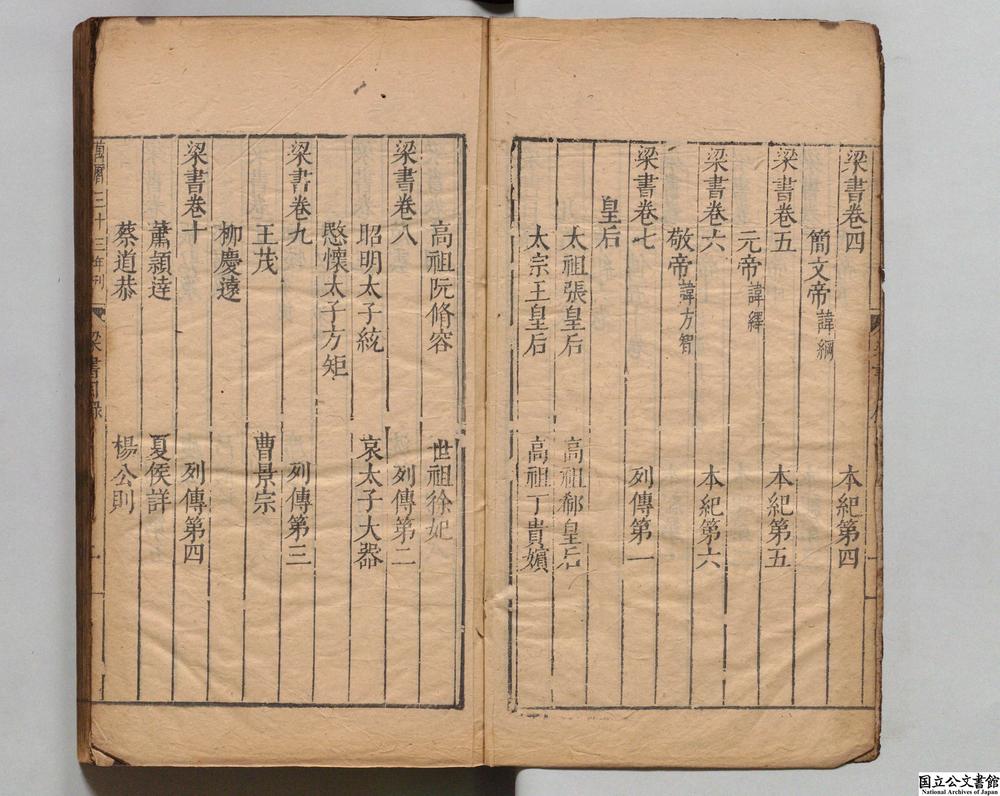 梁書卷四 本紀第四
簡文帝諱綱
梁書卷五 本紀第五
元帝諱繹
梁書卷六 本紀第六
敬帝諱方智
梁書卷七 列傳第一
皇后
太祖張皇后 高祖郗皇后
太宗王皇后 高祖丁貴嬪
高祖阮脩容 世祖徐妃
梁書卷八 列傳第二
昭明太子統 哀太子大器
愍懷太子方矩
梁書卷九 列傳第三
王茂 曹景宗
柳慶遠
梁書卷十 列傳第四
蕭穎達 夏侯詳
蔡道恭 楊公則
萬曆三十三年刊 梁書目錄
国立公文書館
National Archives of Japan